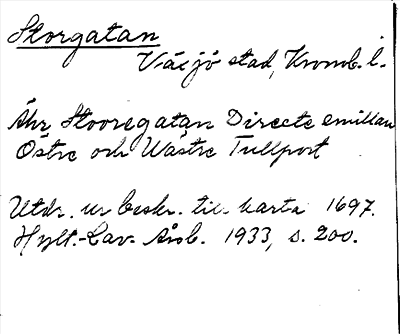 Storgatan
Växjö stad, Kronob. l.
Ähr Stooregatan Directe emillan
Östre och Wästre Tullport
Utdr. ur beskr. till karta 1697.
Hylt.-Cav. Årsb. 1933, s. 200.